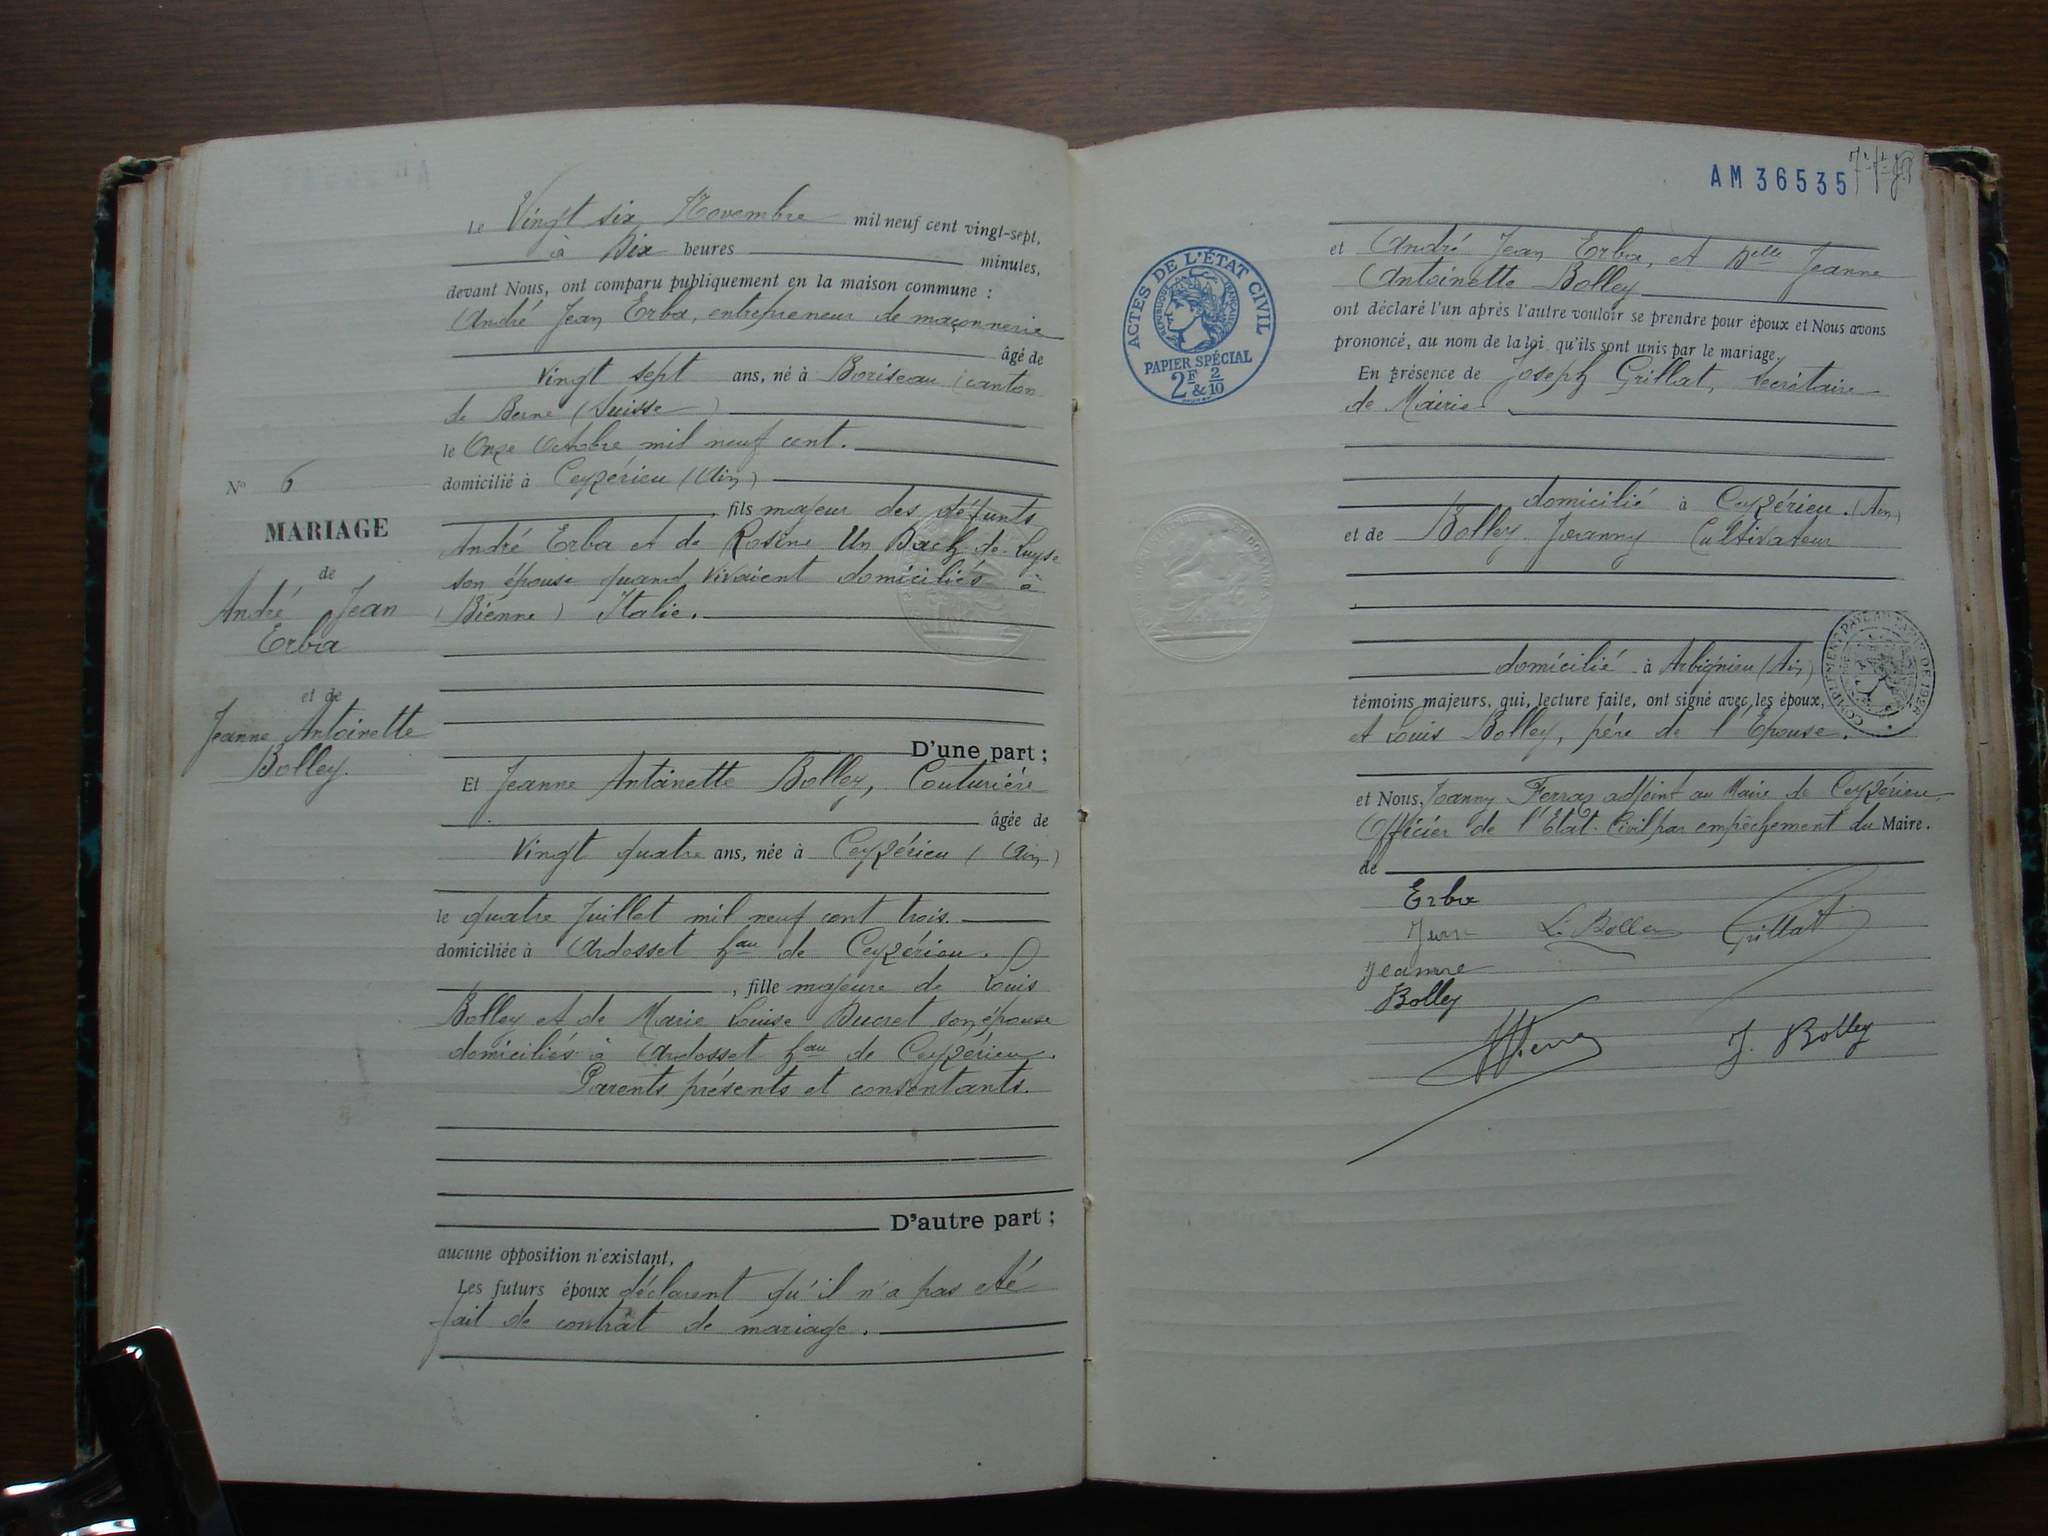 Le Vingt six Novembre mil neuf cent vingt-sept,
à Dix heures minutes,
devant Nous, ont comparu publiquement en la maison commune :
André Jean Erba, entrepreneur de maçonnerie
âgé de
Vingt sept ans, né à Boriseau (canton
de Berne (Suisse)
le Onze Octobre mil neuf cent.
domicilié à Ceyzérieu (Ain)
, fils majeur des défunts
André Erba et de Rosine Un Bach de Luyse
son épouse quand vivaient domiciliés à
(Bienne) Italie.
D'une part ;
Et Jeanne Antoinette Bolley, Couturière
âgée de
Vingt quatre ans, née à Ceyzérieu (Ain)
le quatre Juillet mil neuf cent trois.
domiciliée à Ardosset hau de Ceyzérieu.
, fille majeure de Louis
Bolley et de Marie Louise Ducret son épouse
domiciliés à Ardosset hau de Ceyzérieu.
Parents présents et consentants.
D'autre part ;
aucune opposition n'existant,
Les futurs époux déclarent qu'il n'a pas été
fait de contrat de mariage.
No 6
MARIAGE
de
André Jean
Erba
et de
Jeanne Antoinette
Bolley.
AM 36535
ACTES DE L'ÉTAT CIVIL
RÉPUBLIQUE FRANÇAISE
PAPIER SPÉCIAL
2F & 2/10
et André Jean Erba, et Delle Jeanne
Antoinette Bolley
ont déclaré l'un après l'autre vouloir se prendre pour époux et Nous avons
prononcé, au nom de la loi qu'ils sont unis par le mariage.
En présence de Joseph Grillat, Secrétaire
de Mairie
domicilié à Ceyzérieu. (Ain)
et de Bolley Joanny Cultivateur
domicilié à Arbignieu (Ain)
COMPLEMENT TARIF DE 1926
témoins majeurs, qui, lecture faite, ont signé avec les époux,
et Louis Bolley, père de l'Epouse.
et Nous, Joanny Ferraz adjoint au Maire de Ceyzérieu
Officier de l'Etat-Civil par empêchement du Maire.
de
Erba
Jean L. Bolley Grillat
Jeanne
Bolley
J. Bolley